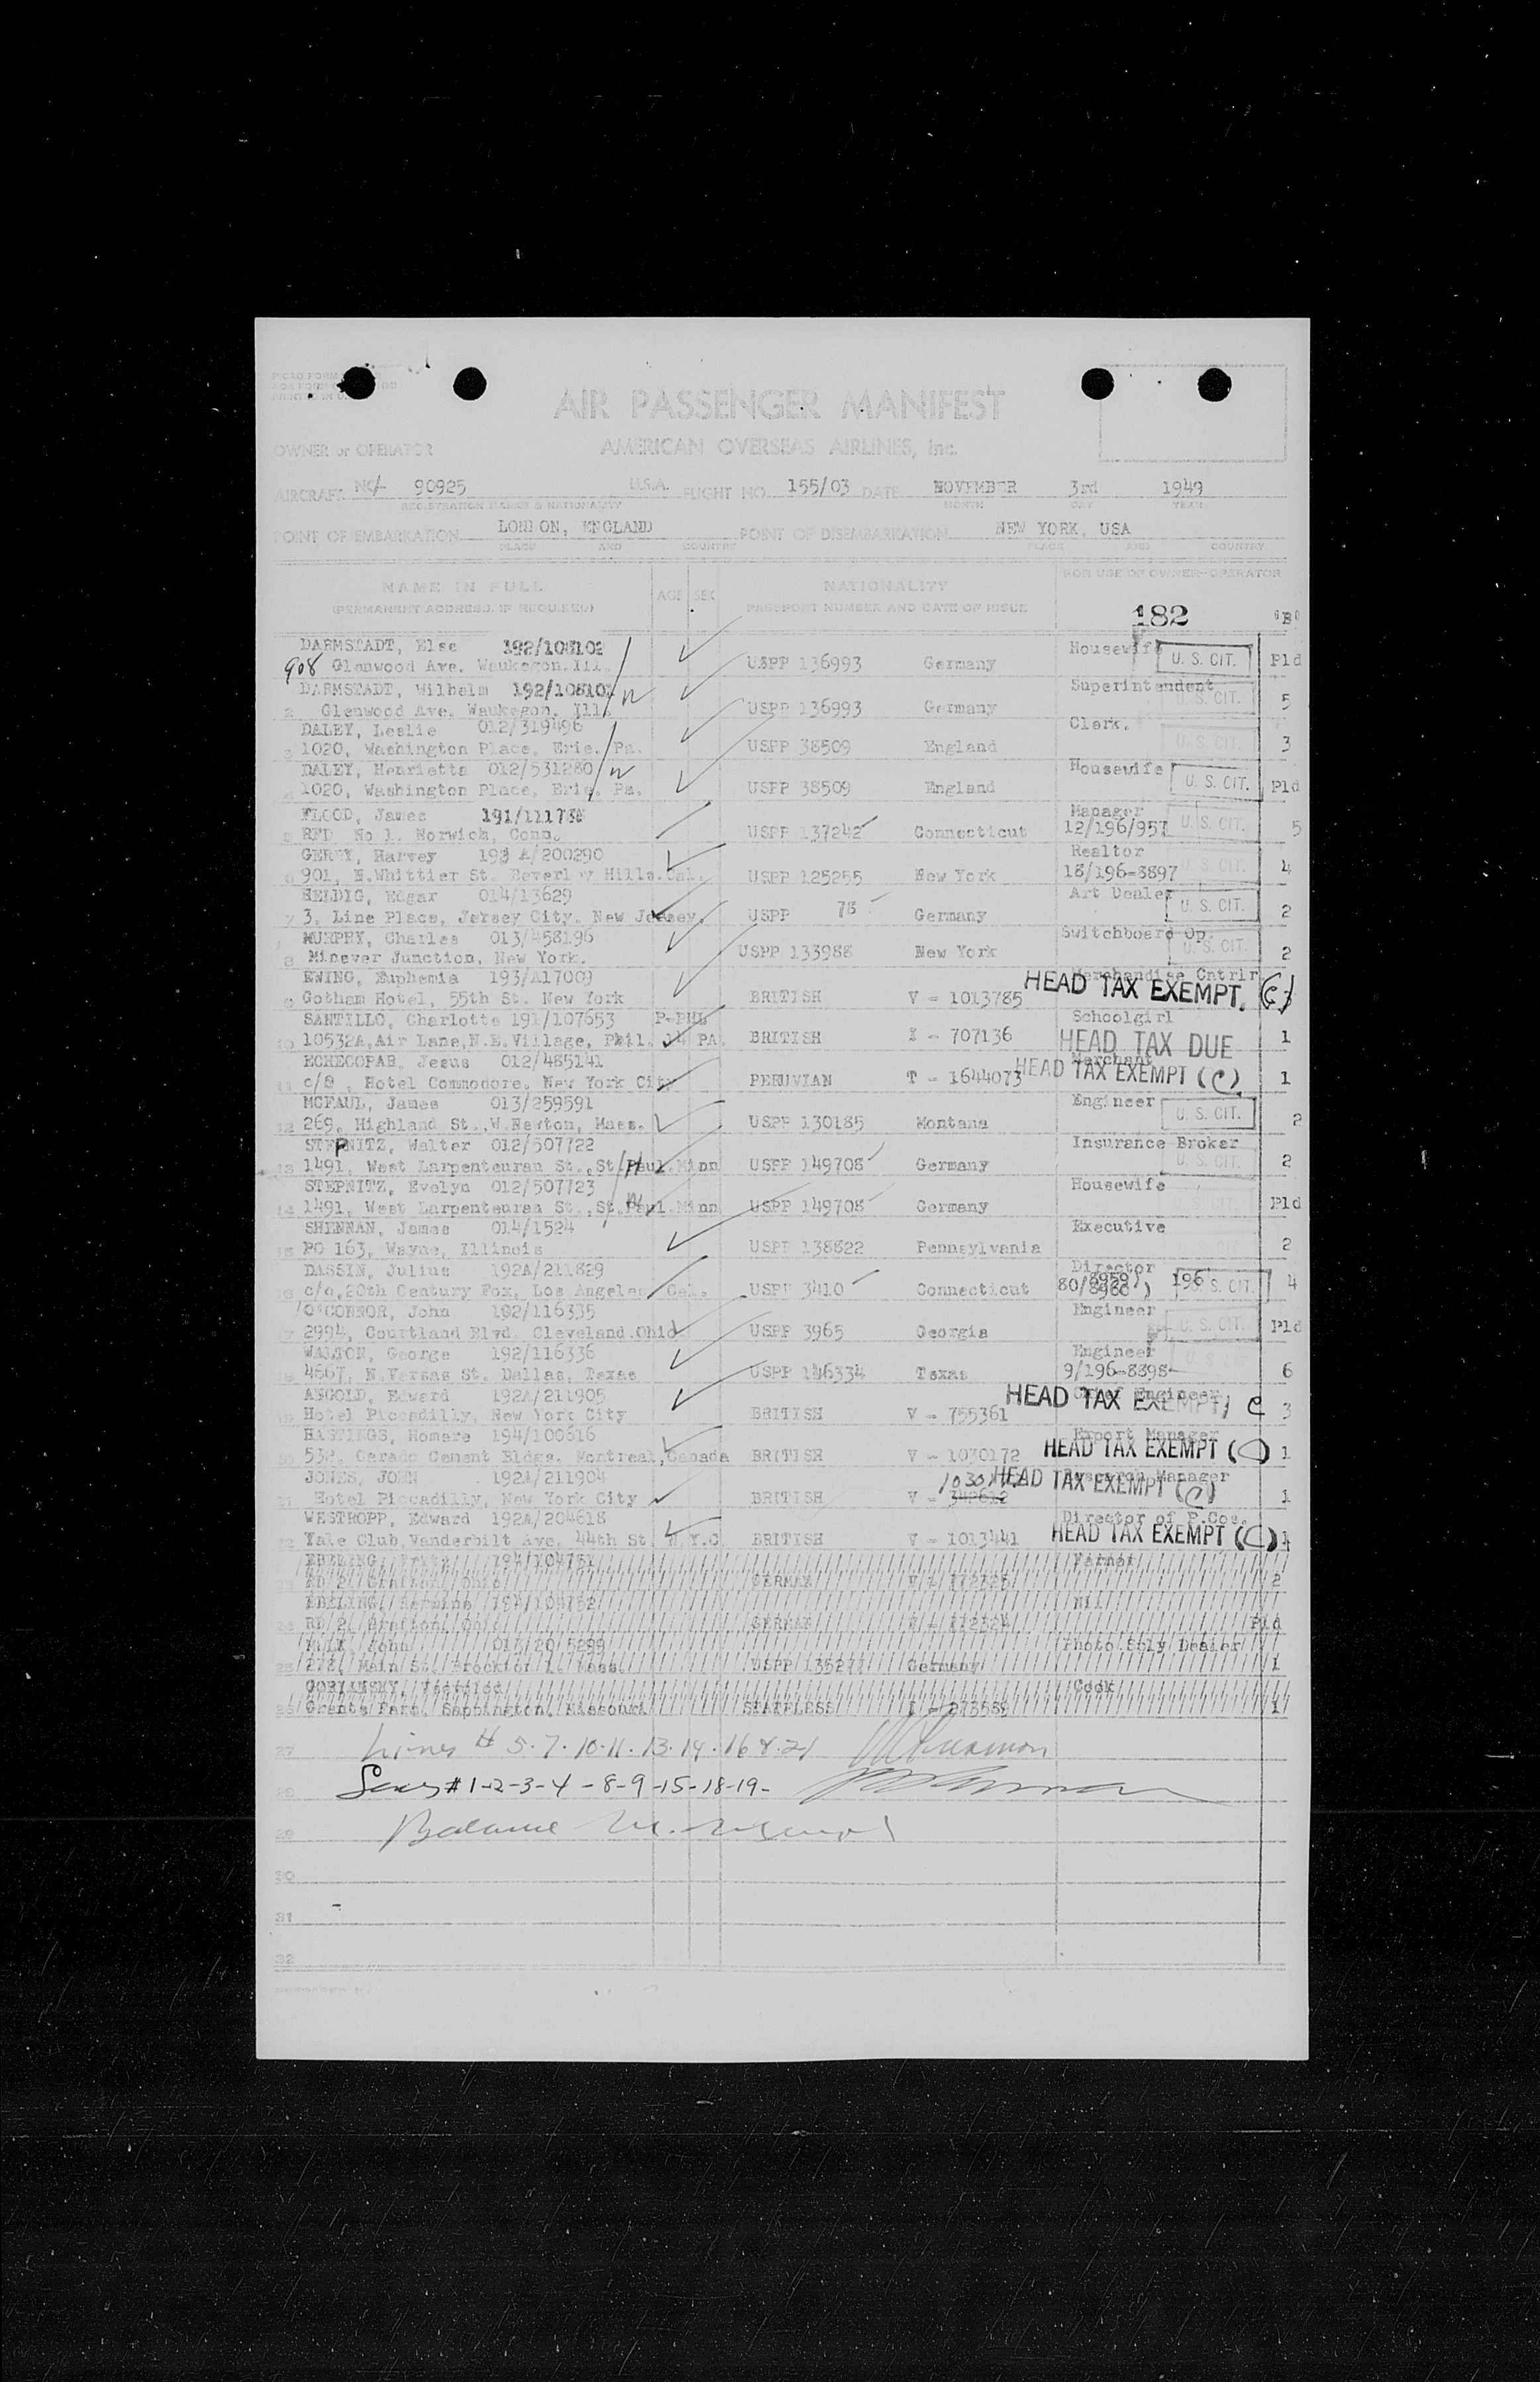 AIR PASSENGER MANIFEST
OWNER or OPERATOR AMERICAN OVERSEAS AIRLINES, Inc.
AIRCRAFT 90925 U.S.A. FLIGHT NO. 155/03 DATE NOVEMBER 3rd 1949
REGISTRATION MARKS & NATIONALITY MONTH DAY YEAR
POINT OF EMBARKATION LONDON, ENGLAND POINT OF DISEMBARKATION NEW YORK, USA
PLACE AND COUNTRY PLACE AND COUNTRY
NAME IN FULL AGE SEX NATIONALITY FOR USE OF OWNER-OPERATOR
(PERMANENT ADDRESS, IF REQUIRED) PASSPORT NUMBER AND DATE OF ISSUE 182 "B"
DARMSTADT, Else Housewife U. S. CIT.
908 Glenwood Ave. Waukegon. Ill. USPP 136993 Germany Pld
DARMSTADT, Wilhelm Superintendent U. S. CIT.
2 Glenwood Ave. Waukegon. Ill. USPP 136993 Germany 5
DALEY, Leslie 012/319496 Clerk.
3 1020, Washington Place, Erie. Pa. USPP 38509 England U. S. CIT. 3
DALEY, Henrietta 012/531280 Housewife
1020, Washington Place, Erie, Pa. USPP 38509 England U. S. CIT. Pld
FLOOD, James Manager
5 RFD No 1. Norwich, Conn. USPP 137242 Connecticut 12/196/957 U. S. CIT. 5
GERRY, Harvey Realtor
6 901, N.Whittier St. Beverley Hills.Cal. USPP 125255 New York 18/196-8897 4
HELDIG, Edgar 014/13629 Art Dealer
7 3, Line Place, Jersey City. New Jersey. USPP 78 Germany U. S. CIT. 2
MURPHY, Charles 013/458196 Switchboard Op.
8 Minever Junction, New York. USPP 133988 New York U. S. CIT. 2
EWING, Euphemia 193/A17009 Merchandise Cntrlr
9 Gotham Hotel, 55th St. New York BRITISH V - 1013785 HEAD TAX EXEMPT. (C)
SANTILLO, Charlotte 191/107653 P-PHL Schoolgirl
10 10532A, Air Lane, N.E.Village, Phil. 14 PA. BRITISH I - 707136 HEAD TAX DUE 1
ECHECOPAR, Jesus 012/485141 Merchant
11 c/o , Hotel Commodore. New York City PERUVIAN T - 1644073 HEAD TAX EXEMPT (C) 1
MCFAUL, James 013/259591 Engineer
12 269, Highland St.,W.Newton, Mass. USPP 130185 Montana U. S. CIT. 2
STEPNITZ, Walter 012/507722 Insurance Broker
13 1491, West Larpenteuran St.,St.Paul.Minn USPP 149708 Germany U. S. CIT. 2
STEPNITZ, Evelyn 012/507723 Housewife
14 1491, West Larpenteuran St.,St.Paul.Minn USPP 149708 Germany Pld
SHENNAN, James 014/1524 Executive
15 PO 163, Wayne, Illinois USPP 138822 Pennsylvania 2
DASSIN, Julius 192A/211829 Director
16 c/o, 20th Century Fox, Los Angeles, Cal. USPP 3410 Connecticut 196 U. S. CIT. 4
O'CONNOR, John 192/116335 Engineer
17 2994, Courtland Blvd. Cleveland.Ohio USPP 3965 Georgia U. S. CIT. Pld
WALTON, George 192/116336 Engineer
4667, N.Versas St. Dallas, Texas USPP 146334 Texas 9/196-8898 6
ANGOLD, Edward 192A/211905 Chief Engineer
19 Hotel Piccadilly, New York City BRITISH V - 755361 HEAD TAX EXEMPT/ C 3
HASTINGS, Homare 194/100616 Export Manager
Cement Bldgs. Montreal,Canada BRITISH V - 1030172 HEAD TAX EXEMPT (C) 1
JONES, JOHN 192A/211904 Research Manager
Hotel Piccadilly, New York City BRITISH V - HEAD TAX EXEMPT (C) 1
WESTROPP, Edward 192A/204618 Director of P.Cos.
Yale Club, Vanderbilt Ave. 44th St N.Y.C BRITISH V - 1013441 HEAD TAX EXEMPT (C) 1
EBELING, Fritz 194/104751 Farmer
RD 2. Grafton, Ohio GERMAN 2
EBELING, Hermine 194/104752 Nil
24 RD 2, Grafton, Ohio GERMAN Pld
John Photo Sply Dealer
25 272, Main St. Brockton 1. Mass. USPP 135277 Germany 1
Cook
26 Grants Farm, Sappington, Missouri STATELESS 1
27 Lines # 5-7-10-11-13-14-16 & 21
Lines # 1-2-3-4-8-9-15-18-19-
29 Balance
30
31
32